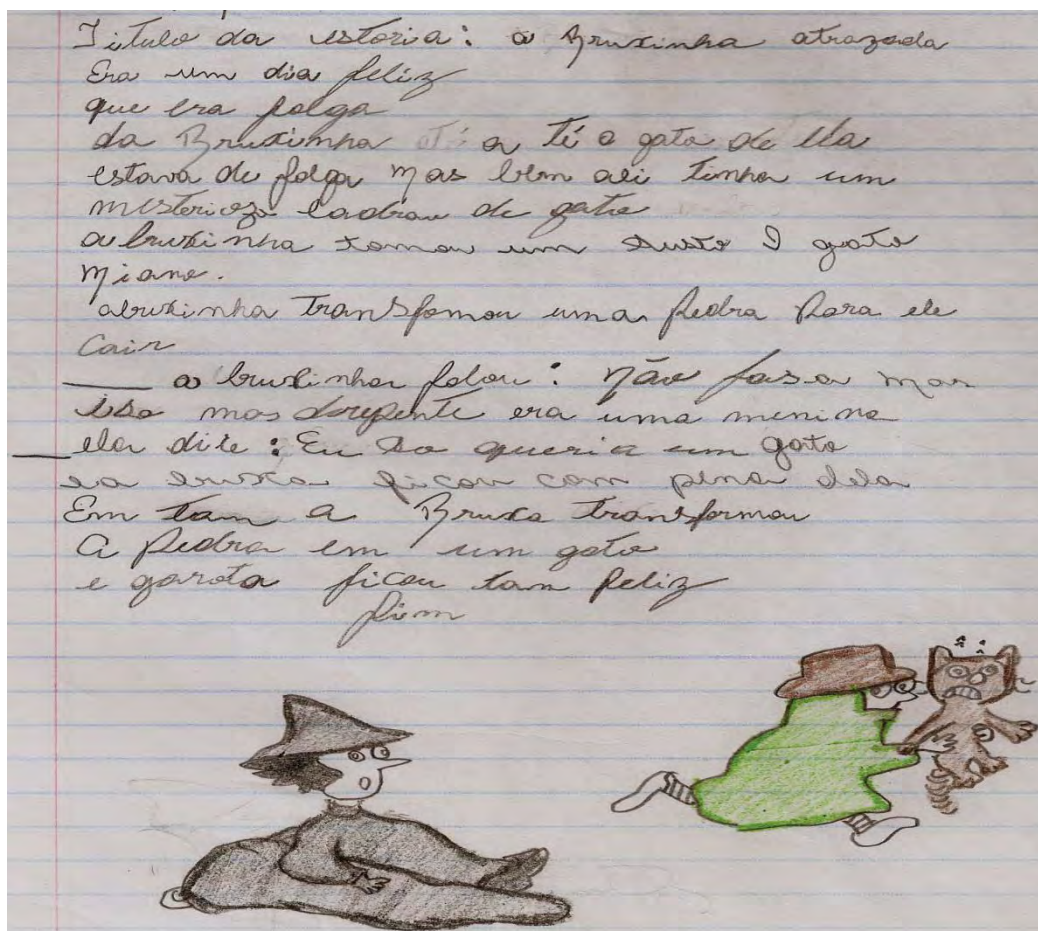 Titulo da istoria: a Bruxinha atrazada
Era um dia feliz
que era folga
da Bruximha a té o gato de ela
estava de folga mas bem ali tinha um
misteriozo ladrau de gato
abruxinha tomou um susto I gato
miano.
abruxinha transfomou uma Pedra Para ele
Cair
___ a bruxinha falou: Não fasa mas
isso mas derepente era uma menina
___ ela dise: Eu so queria um gato
ea bruxa ficou com pena dela
Em tam a Bruxa transformou
A Pedra em um gato
e garota ficou tam feliz
fim